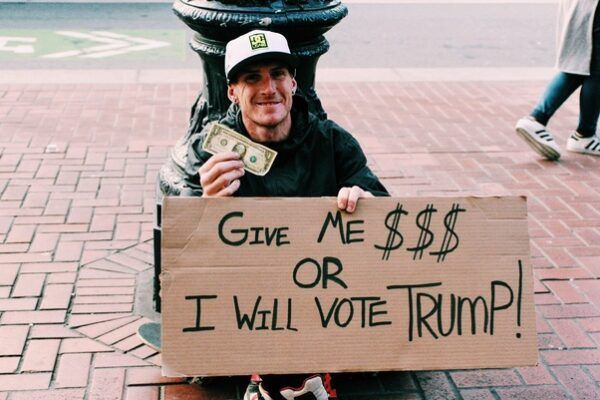 GIVE ME $$$
OR
I WILL VOTE TRUMP!